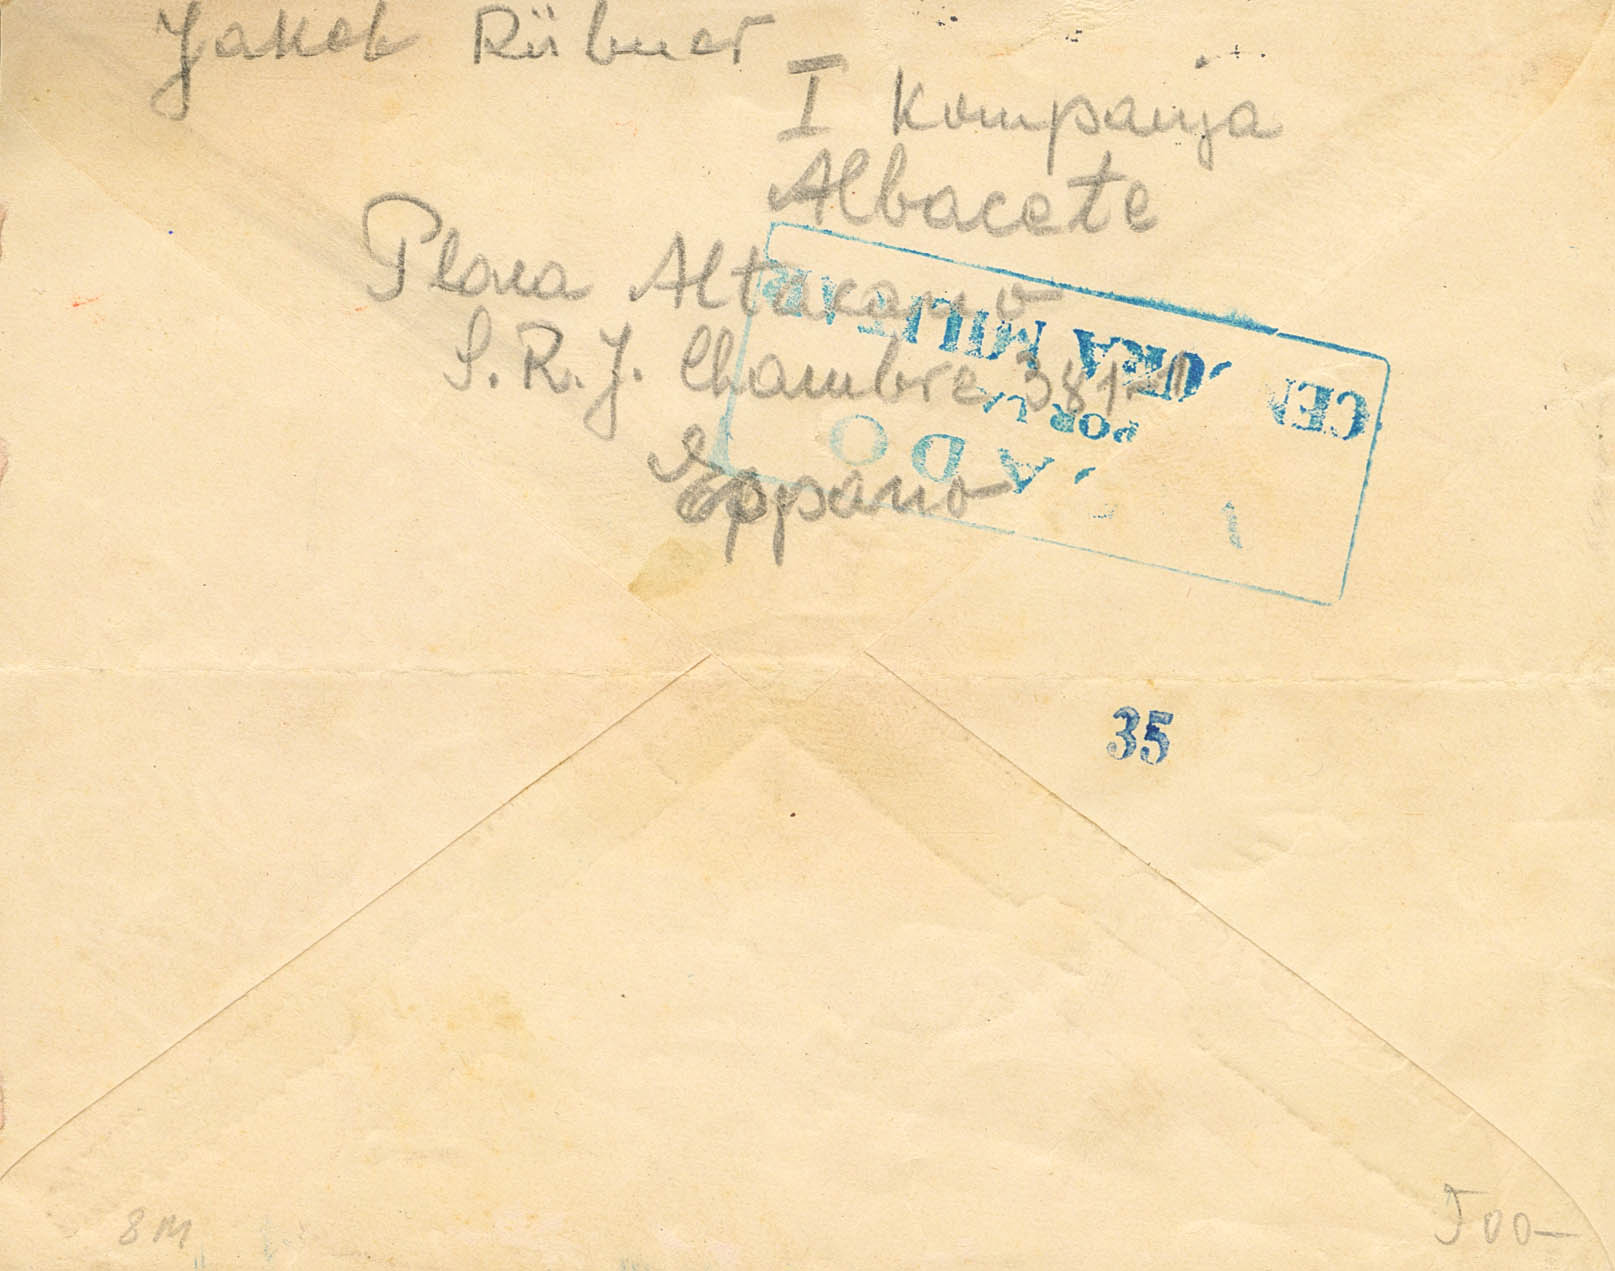 Jakob Rübner
I Kompanja
Albacete
Plaza Altozano
S.R.J. Chambre 381-11
Eppano
CEN URA MILITAR
POR LA
ADO
35
8M
500-